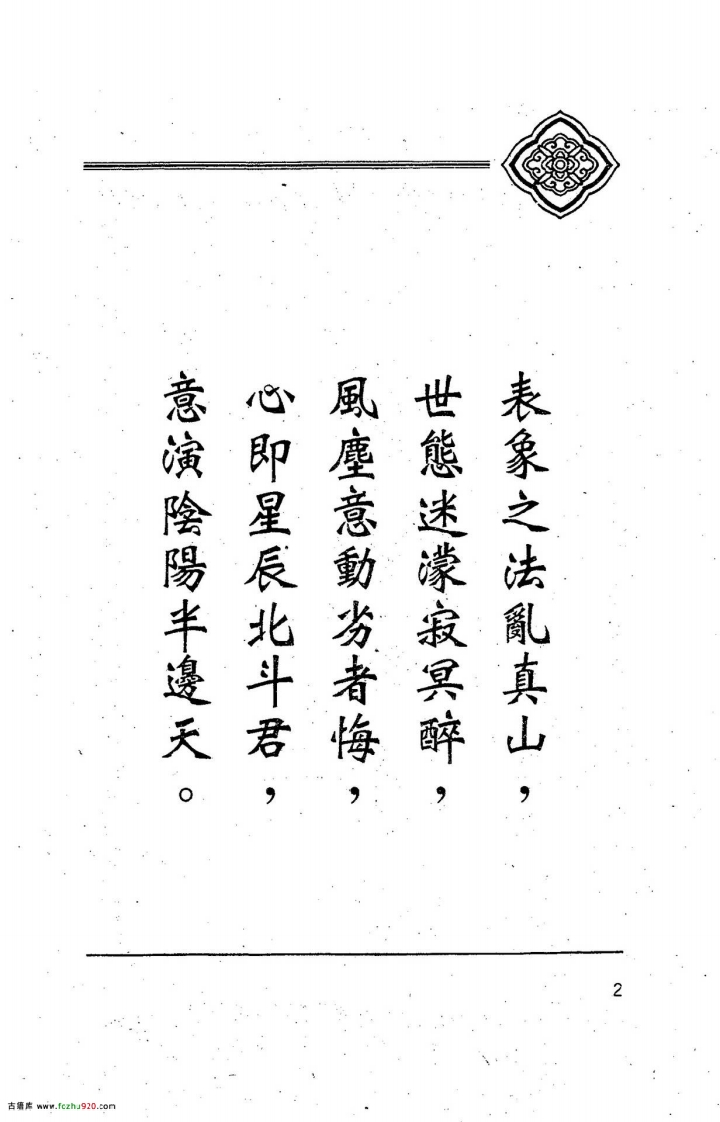 表象之法亂真山，
世態迷濛寂冥醉，
風塵意動劣者悔，
心即星辰北斗君，
意演陰陽半邊天。
2
古籍库 www.fczhu920.com